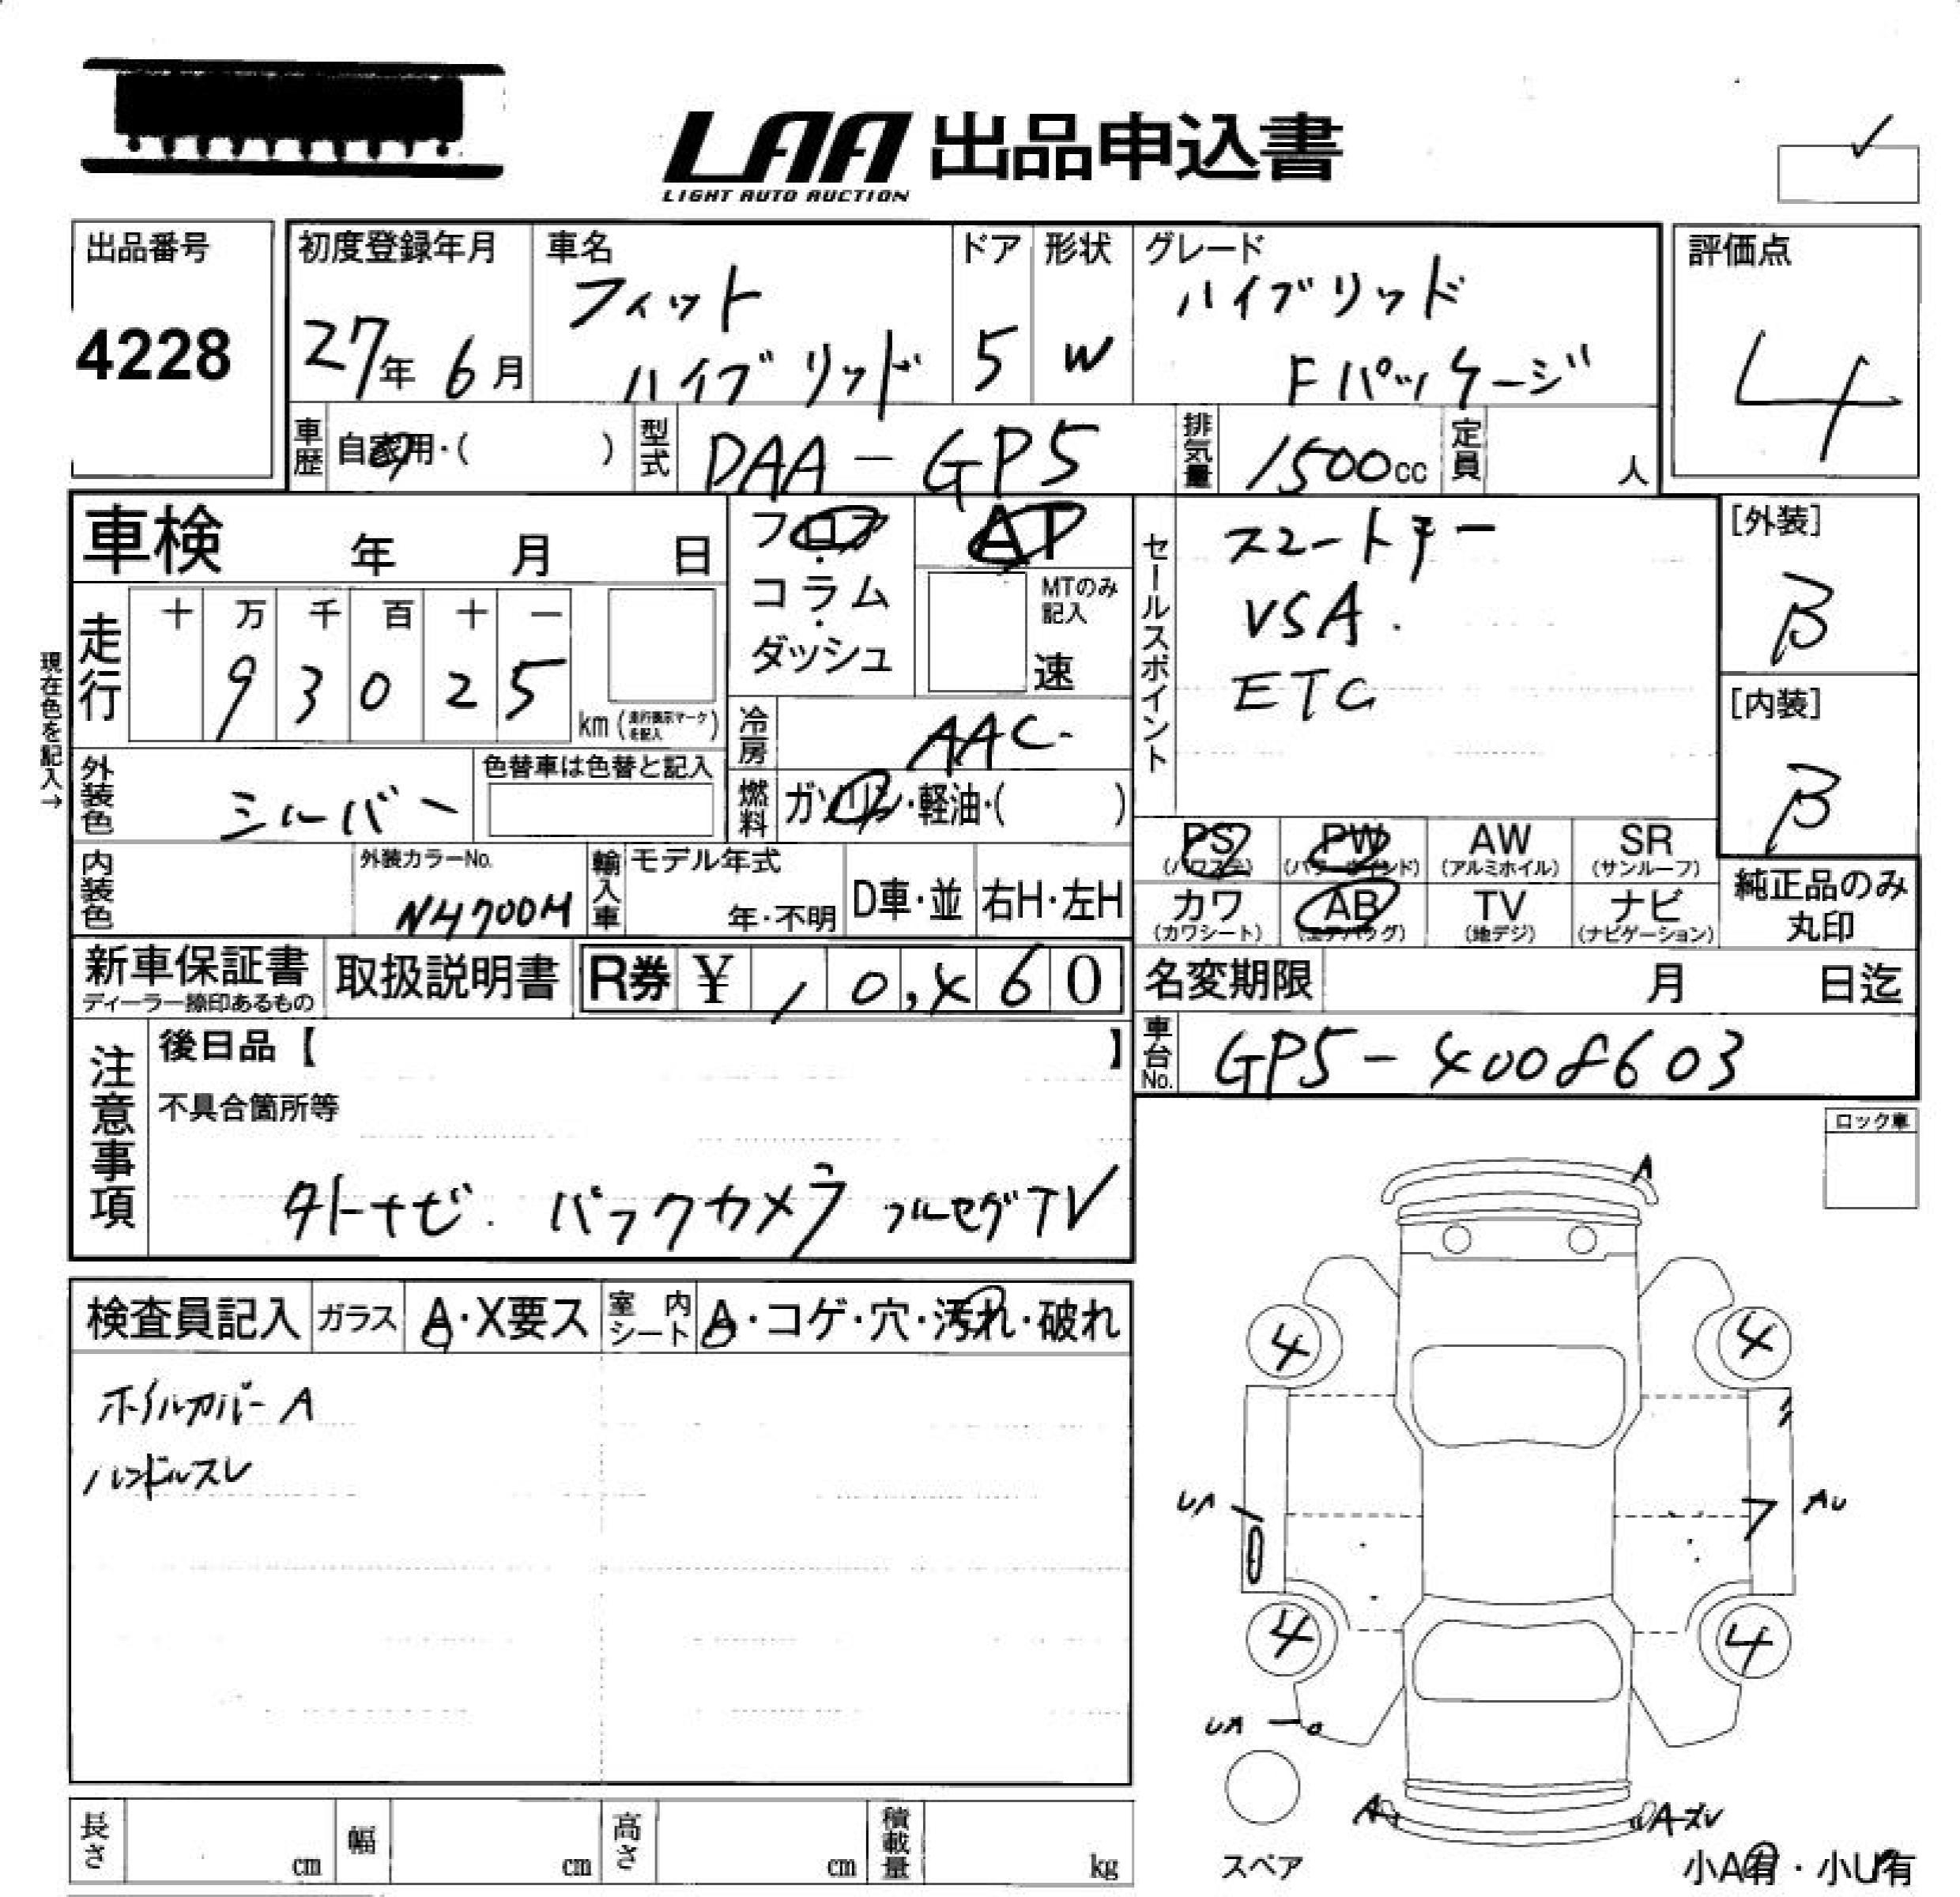 LAA 出品申込書
LIGHT AUTO AUCTION
出品番号
4228
初度登録年月
27年 6月
車名
フィット
ハイブリッド
ドア
5
形状
W
グレード
ハイブリッド
Fパッケージ
評価点
4
車歴 自家用・( )
型式 DAA-GP5
排気量 1500cc
定員 人
車検 年 月 日
フロア・コラム・ダッシュ
AT
MTのみ記入
速
セールスポイント
スマートキー
VSA.
ETC
[外装]
B
[内装]
B
現在色を記入→
走行
十 万 千 百 十 一
9 3 0 2 5
km(走行表示マークを記入)
冷房 AAC
燃料 ガソリン・軽油・( )
外装色 シルバー
色替車は色替と記入
内装色
外装カラーNo.
NH700M
輸入車
モデル年式
年・不明
D車・並
右H・左H
PS
(パワステ)
PW
(パワーウインド)
AW
(アルミホイル)
SR
(サンルーフ)
カワ
(カワシート)
AB
(エアバッグ)
TV
(地デジ)
ナビ
(ナビゲーション)
純正品のみ
丸印
新車保証書
ディーラー捺印あるもの
取扱説明書
R券 ¥ 10,460
名変期限 月 日迄
車台No. GP5-4008603
注意事項
後日品【 】
不具合箇所等
外ナビ. バックカメラ フルセグTV
ロック車
検査員記入
ガラス A・X要ス
室内シート A・コゲ・穴・汚れ・破れ
ホイルカバー A
ハンドルスレ
A
4 4
UA
AU
4 4
UA
スペア
A
Aズレ
小A有・小U有
長さ cm
幅 cm
高さ cm
積載量 kg